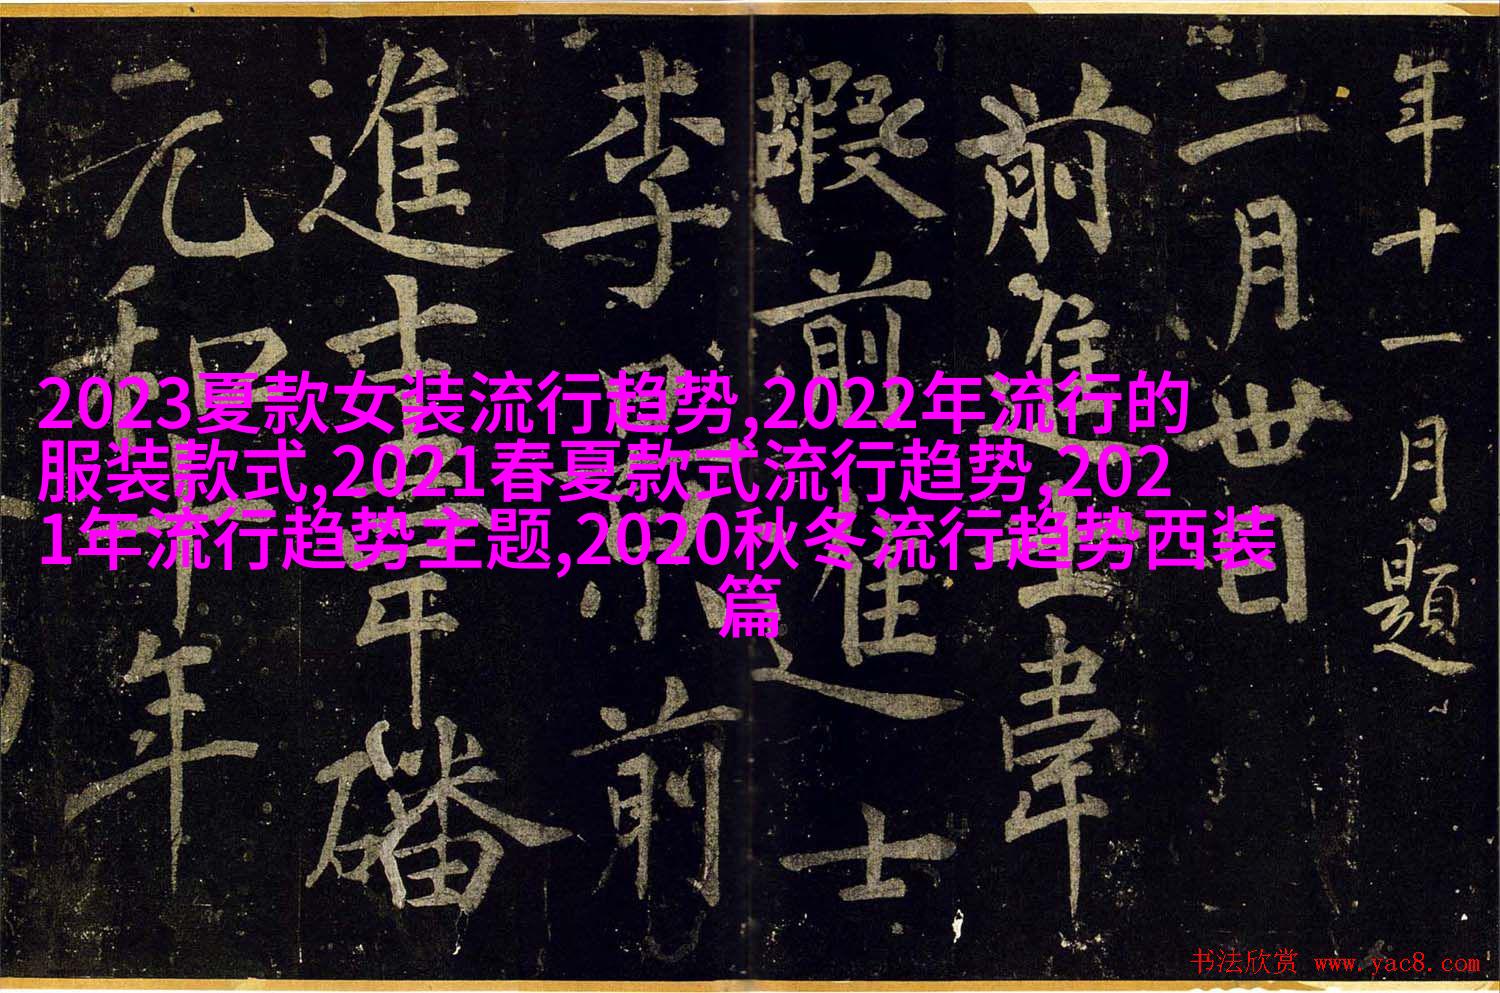 2023夏款女装流行趋势,2022年流行的
服装款式,2021春夏款式流行趋势,202
1年流行趋势主题,2020秋冬流行趋势西装
篇
年十一月題
二月卅日
前進士韋
前進士
李景 前
進士 年 磻
元和 年 年
书法欣赏 www.yac8.com